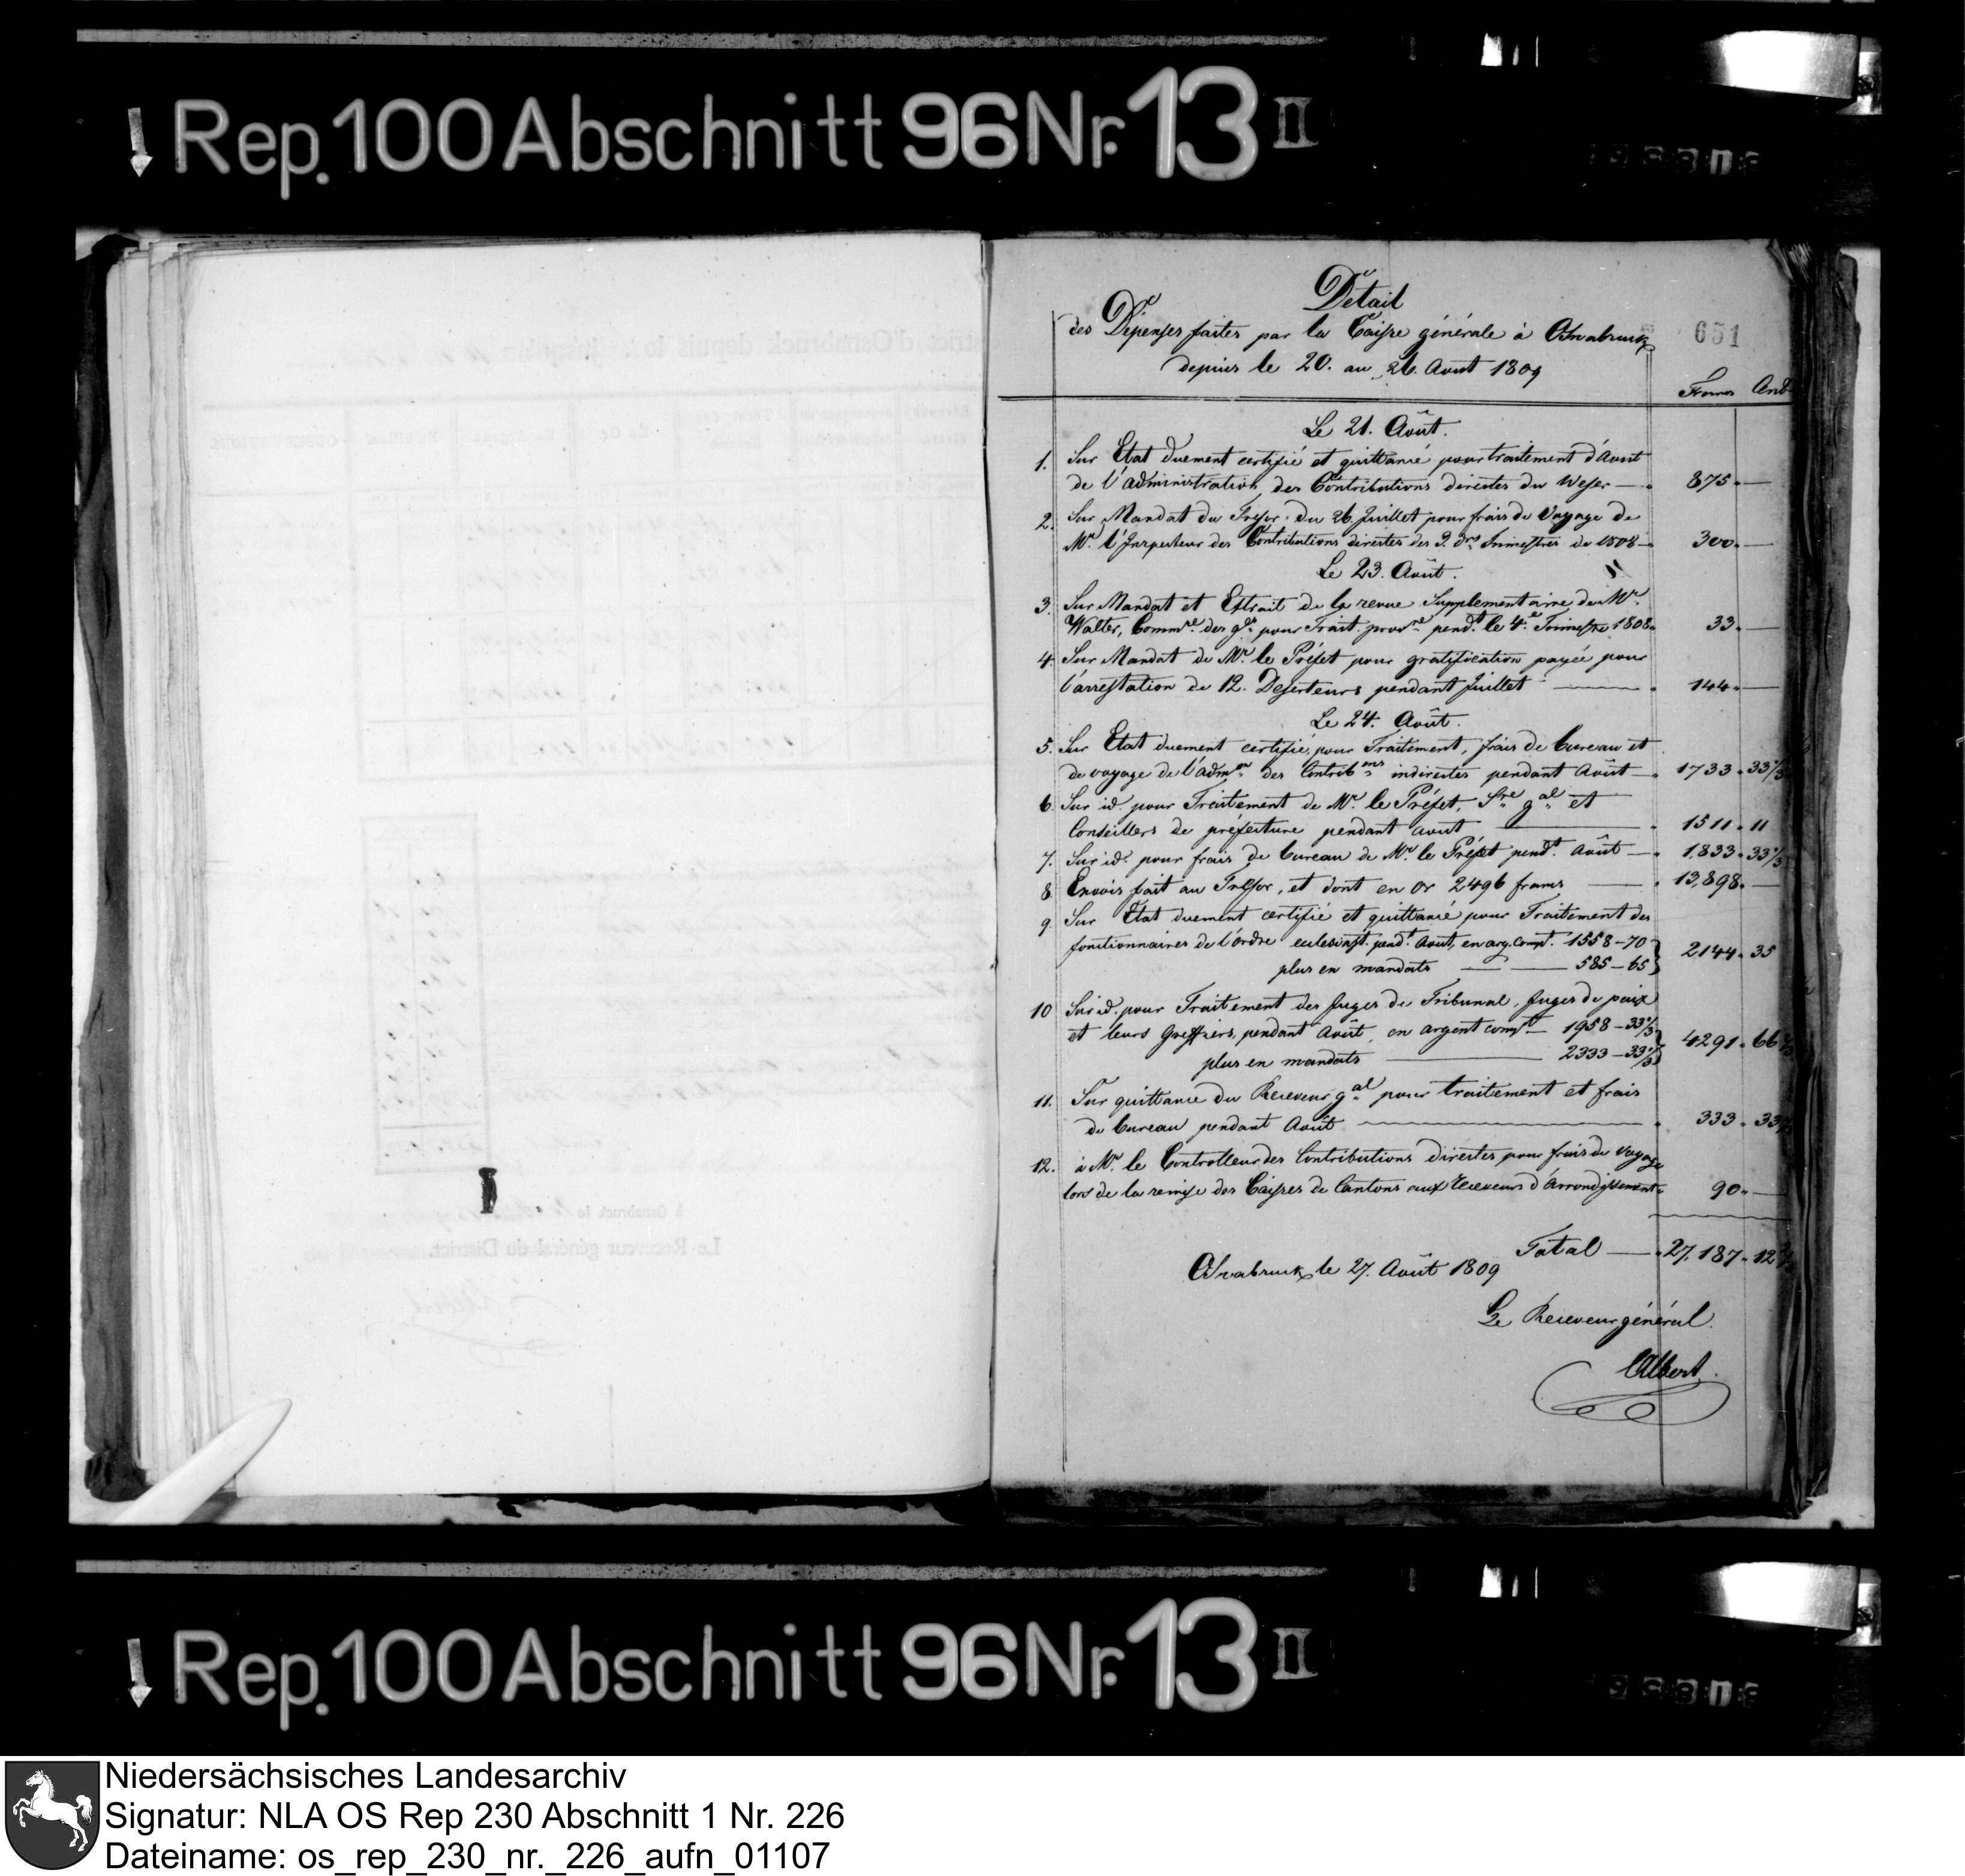 Rep. 100 Abschnitt 96 Nr. 13 II
Détail
des Dépenses faites par la Caisse générale à Osnabruck
651
depuis le 20. au 26. Aout 1809
Francs Cent
Le 21. Août.
1. Sur Etat duement certifié et quittancé pour traitement d'Aout
de l'administration des Contributions directes du Weser — 875. —
2. Sur Mandat du Tresor du 26 Juillet pour frais de Voyage de
Mr. l'Inspecteur des Contributions directes des 3. drs Trimestres de 1808 — 300. —
Le 23. Août.
3. Sur Mandat et Extrait de la revue Supplementaire de Mr.
Walter, Commre. des gres pour Trait. provre pendt. le 4e. Trimestre 1808. 33. —
4. Sur Mandat de Mr. le Préfet pour gratification payée pour
l'arrestation de 12. Deserteurs pendant Juillet — 144. —
Le 24. Août.
5. Sur Etat duement certifié, pour Traitement, frais de bureau et
de voyage de l'admon. des Contribons indirectes pendant Août — 1733. 33 1/3
6. Sur id. pour Traitement de Mr. le Préfet, Sre. gal. et
Conseillers de préfecture pendant aout — 1511. 11
7. Sur id. pour frais de bureau de Mr. le Préfet pendt. Août — 1,833. 33 1/3
8 Envois fait au Tresor, et dont en or 2496 francs — 13,898. —
9. Sur Etat duement certifié et quittancé pour Traitement des
fonctionnaires de l'ordre eclesiast. pendt. Aout, en arg. compt. 1558-70
2144. 35
plus en mandats — 585-65
10 Sur id. pour Traitement des Juges de Tribunal, Juges de paix
et leurs Greffiers, pendant Août, en argent compt — 1958-33 1/3
4291. 66 2/3
plus en mandats — 2333-33 1/3
11. Sur quittance du Receveur gal. pour traitement et frais
de bureau pendant Août — 333. 33 1/3
12. à Mr. le Controlleur des Contributions directes pour frais de voyage
lors de la remise des Caisses de Cantons aux Receveurs d'Arrondissement 90. —
Total — 27,187. 12 2/3
Osnabruck, le 27. Août 1809
Le Receveur général.
Albert.
Rep. 100 Abschnitt 96 Nr. 13 II
Niedersächsisches Landesarchiv
Signatur: NLA OS Rep 230 Abschnitt 1 Nr. 226
Dateiname: os_rep_230_nr._226_aufn_01107